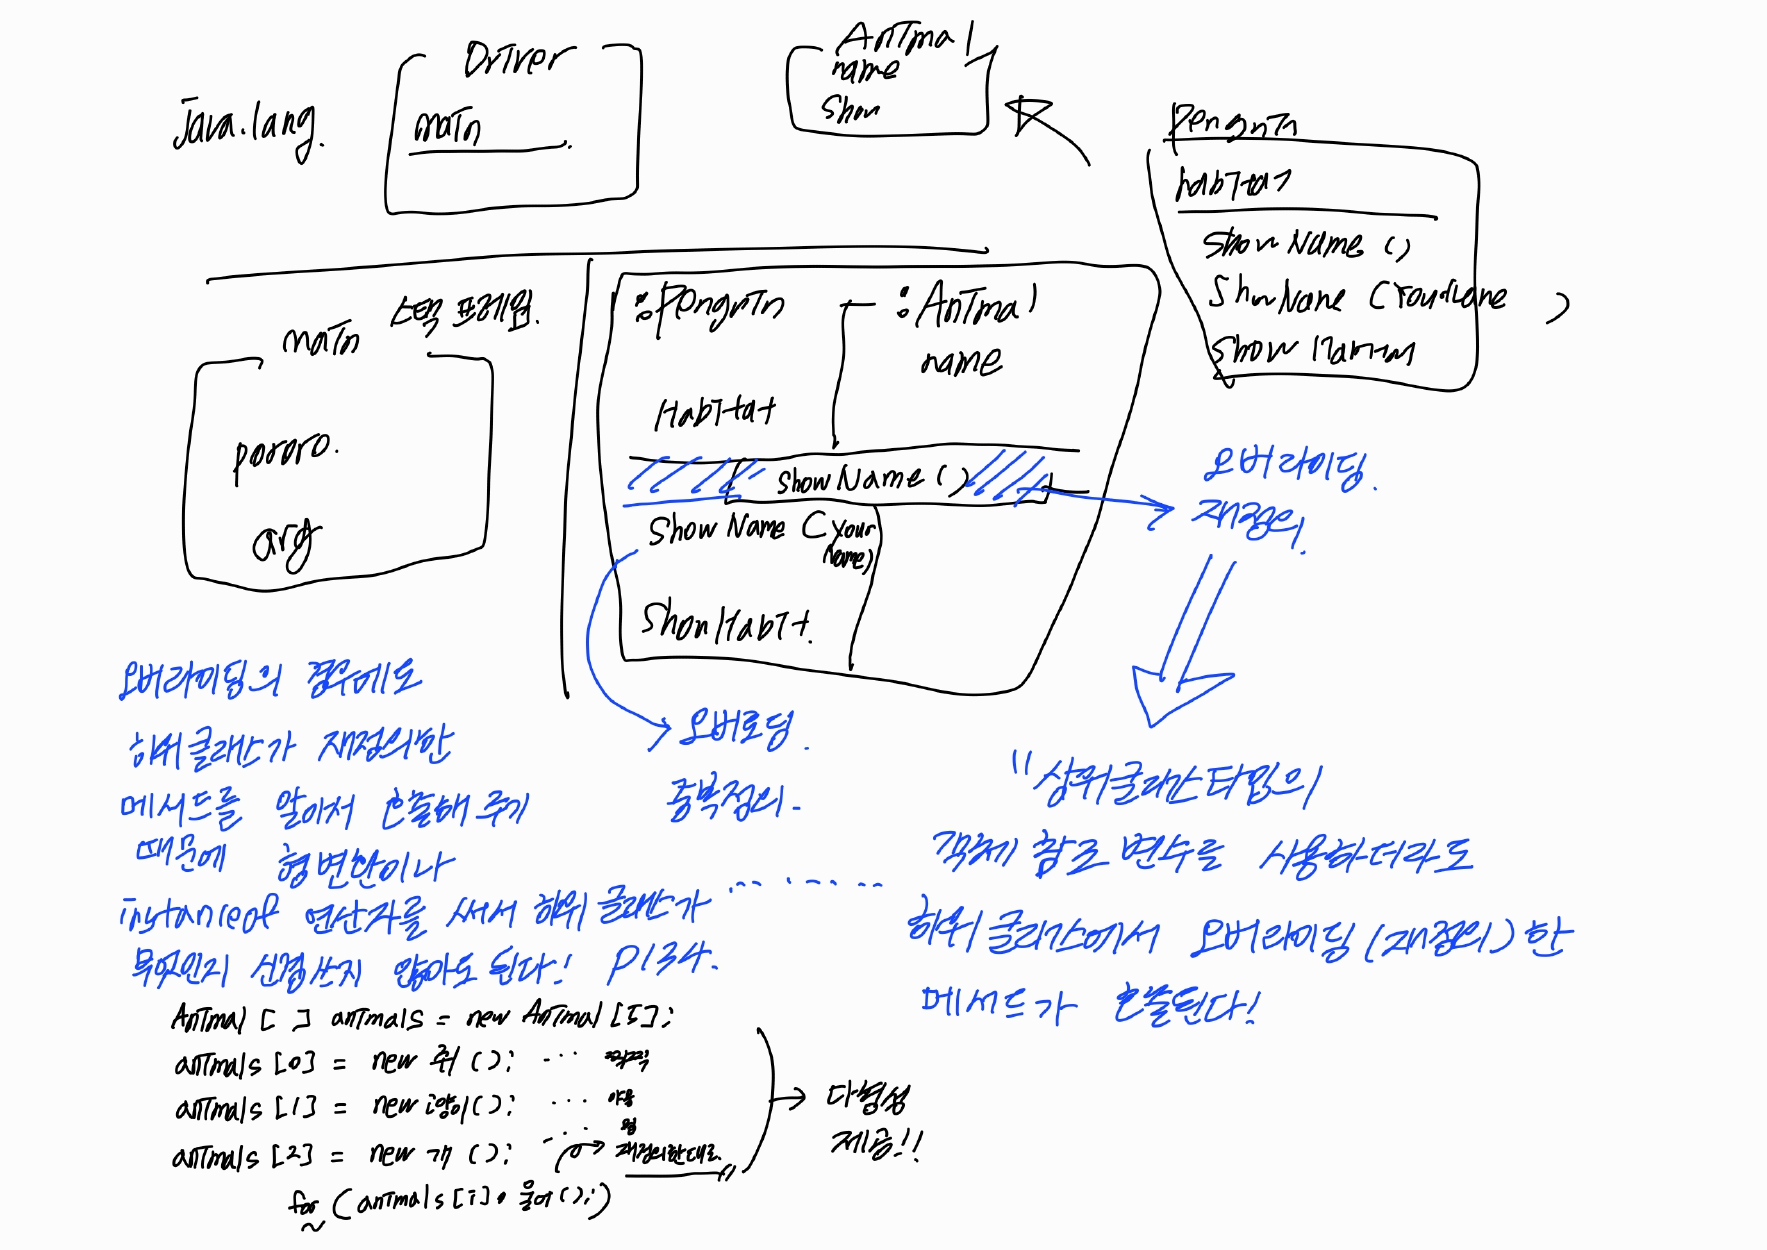 java.lang.
Driver
main
Animal
name
show
Penguin
habitat
showName ()
showName (YourName )
show Habitat
스택 프레임.
main
pororo.
arg
:Penguin
:Animal
name
Habitat
showName ()
show Name (Your
Name)
ShowHabit.
오버라이딩.
재정의.
오버로딩.
중복정의.
오버라이딩의 경우에도
하위클래스가 재정의한
메서드를 알아서 호출해 주기
때문에 형변환이나
instanceof 연산자를 써서 하위 클래스가 .........
무엇인지 신경쓰지 않아도 된다! P134.
"상위클래스타입의
객체 참조 변수를 사용하더라도
하위 클래스에서 오버라이딩 (재정의)한
메서드가 호출된다!
Animal [ ] animals = new Animal[5];
animals [0] = new 쥐 (); ... 찍찍
animals [1] = new 고양이(); ... 야옹
animals [2] = new 개 (); ... 멍
재정의한대로.
for (animals[i].울어();)
다형성
제공!!